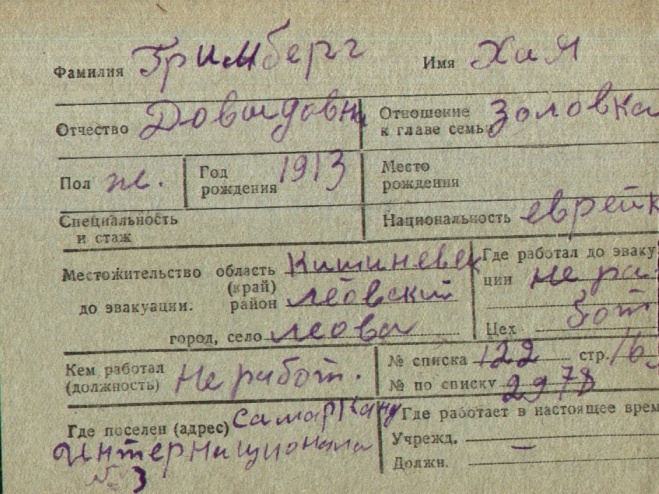 Фамилия Гримберг Имя Хая
Отчество Довыдовна Отношение к главе семьи Золовка
Пол ж. Год рождения 1913 Место рождения
Специальность и стаж Национальность еврейк
Местожительство область (край) Кишиневск Где работал до эваку
до эвакуации. район Леовский ции не ра-
город, село Леова бот
Цех
Кем работал (должность) Не работ. № списка 122 стр. 16
№ по списку 2978
Где поселен (адрес) Самарканд Где работает в настоящее врем
Интернационала Учрежд.
№ 3 Должн. —